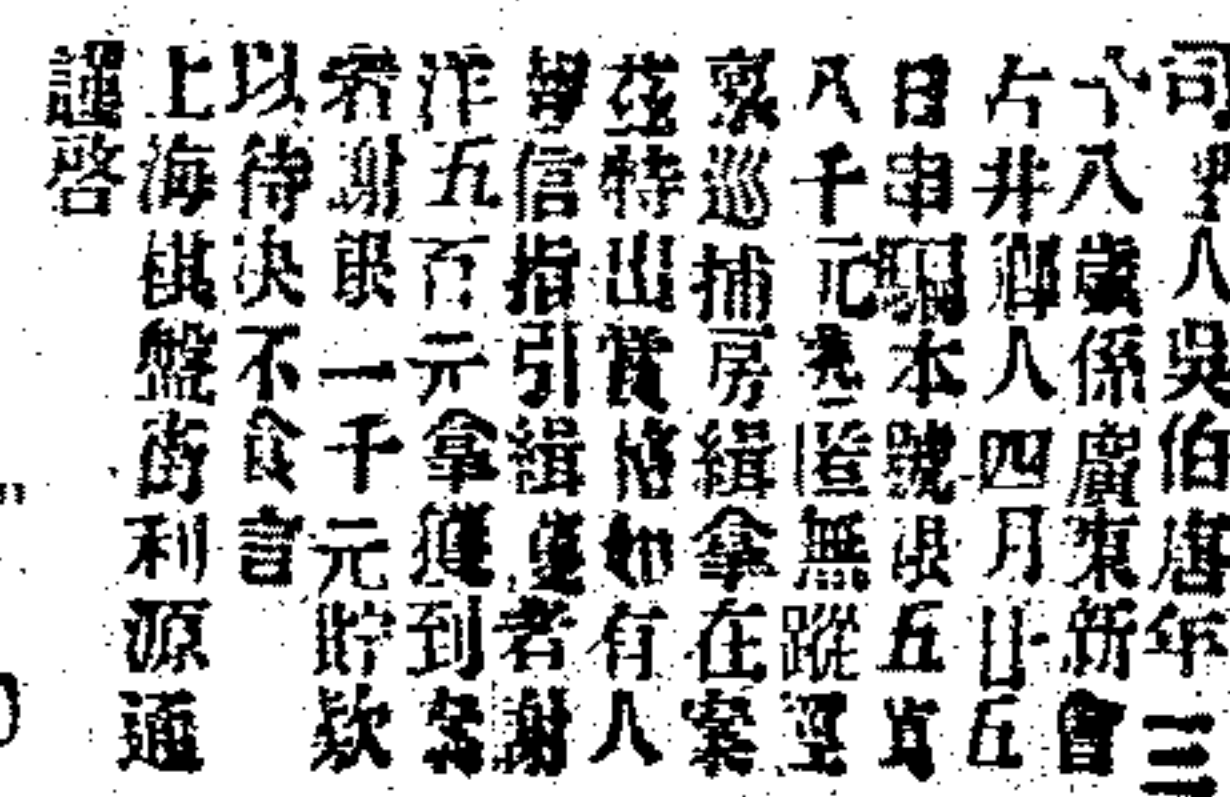 司理人吳伯唐年三
十八歲係廣東新會
古井鄉人四月廿五
日串騙本號銀五萬
八千元逃匿無蹤經
稟巡捕房緝拿在案
茲特出賞格如有人
報信指引緝獲者謝
洋五百元拿獲到案
者謝銀一千元貯款
以待決不食言
上海棋盤街利源通
謹啓